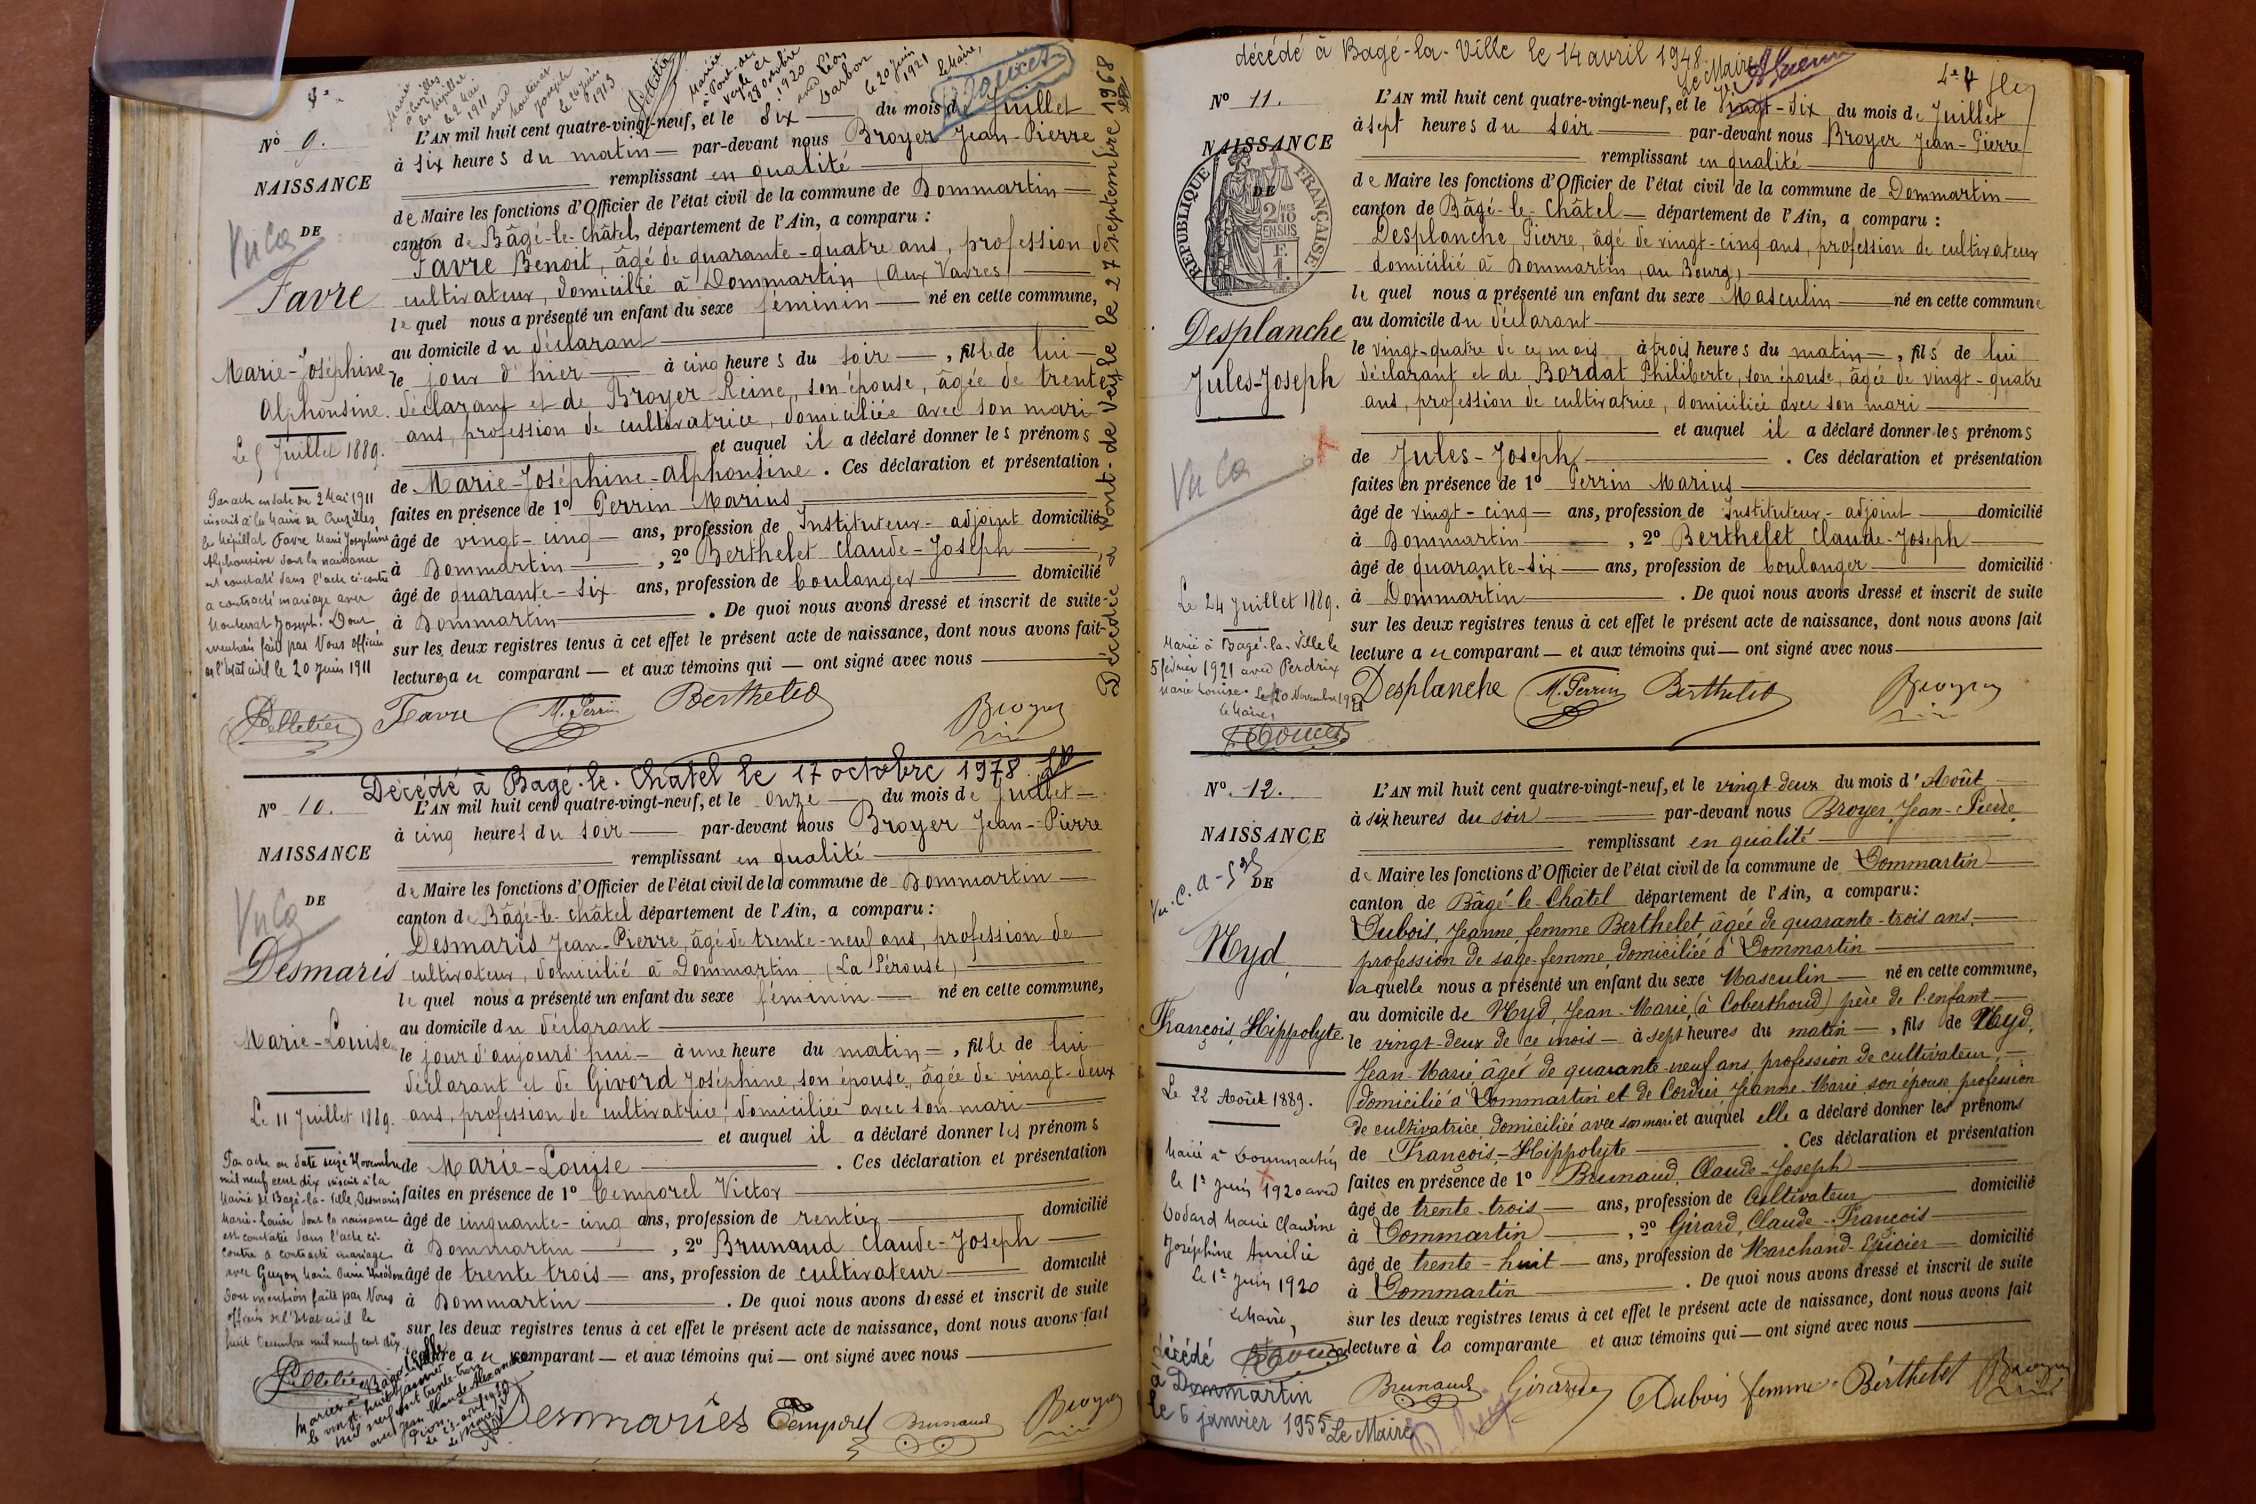 Décédée à Pont-de-Veyle le 27 septembre 1968
Nº 9.
NAISSANCE
DE
Favre
Marie-Joséphine
Alphonsine.
Le 5 Juillet 1889.
Par acte en date du 2 Mai 1911
inscrit à la Mairie de Cruzilles
les Mépillat Favre Marie Josephine
Alphonsine dont la naissance
est constaté dans l'acte ci-contre
a contracté mariage avec
Joseph. Dont
mention faite par Nous officier
de l'Etat civil le 20 Juin 1911
Pelletier
L'AN mil huit cent quatre-vingt-neuf, et le six du mois de Juillet
à six heures du matin par-devant nous Broyer Jean-Pierre
remplissant en qualité
de Maire les fonctions d'Officier de l'état civil de la commune de Dommartin
canton de Bâgé-le-Châtel, département de l'Ain, a comparu :
Favre Benoit, âgé de quarante-quatre ans, profession de
cultivateur, domicilié à Dommartin (Aux Vavres)
le quel nous a présenté un enfant du sexe féminin né en cette commune,
au domicile du déclarant
le jour d'hier à cinq heures du soir, fille de lui
déclarant et de Broyer Reine, son épouse, âgée de trente
ans, profession de cultivatrice, domiciliée avec son mari
et auquel il a déclaré donner les prénoms
de Marie-Joséphine-Alphonsine. Ces déclaration et présentation
faites en présence de 1º Perrin Marius
âgé de vingt-cinq ans, profession de Instituteur-adjoint domicilié
à Dommartin, 2º Berthelet Claude-Joseph
âgé de quarante-six ans, profession de boulanger domicilié
à Dommartin. De quoi nous avons dressé et inscrit de suite
sur les deux registres tenus à cet effet le présent acte de naissance, dont nous avons fait
lecture au comparant et aux témoins qui ont signé avec nous
Favre M. Perrin Berthelet Broyer
Décédé à Bagé-le-Chatel le 17 octobre 1978
Nº 10.
NAISSANCE
DE
Desmaris
Marie-Louise
Le 11 Juillet 1889.
Par acte en date seize Novembre
mil neuf cent dix inscrit à la
Mairie de Bagé-la-Ville, Desmaris
Marie-Louise dont la naissance
est constatée dans l'acte ci-
contre a contracté mariage
avec Guyon Marie Pierre
Dont mention faite par Nous
officier de l'Etat civil le
huit Décembre mil neuf cent dix
Pelletier
L'AN mil huit cent quatre-vingt-neuf, et le onze du mois de Juillet
à cinq heures du soir par-devant nous Broyer Jean-Pierre
remplissant en qualité
de Maire les fonctions d'Officier de l'état civil de la commune de Dommartin
canton de Bâgé-le-Châtel département de l'Ain, a comparu :
Desmaris Jean-Pierre, âgé de trente-neuf ans, profession de
cultivateur, domicilié à Dommartin (La Pérouse)
le quel nous a présenté un enfant du sexe féminin né en cette commune,
au domicile du déclarant
le jour d'aujourd'hui à une heure du matin, fille de lui
déclarant et de Givord Joséphine, son épouse, âgée de vingt-deux
ans, profession de cultivatrice, domiciliée avec son mari
et auquel il a déclaré donner les prénoms
de Marie-Louise. Ces déclaration et présentation
faites en présence de 1º Temporel Victor
âgé de cinquante-cinq ans, profession de rentier domicilié
à Dommartin, 2º Brunaud Claude-Joseph
âgé de trente trois ans, profession de cultivateur domicilié
à Dommartin. De quoi nous avons dressé et inscrit de suite
sur les deux registres tenus à cet effet le présent acte de naissance, dont nous avons fait
lecture au comparant et aux témoins qui ont signé avec nous
Desmaries Temporel Brunaud Broyer
décédé à Bagé-la-Ville le 14 avril 1948.
Le Maire
Nº 11.
NAISSANCE
DE
RÉPUBLIQUE FRANÇAISE
Desplanche
Jules-Joseph
Le 24 Juillet 1889.
Marié à Bagé-la-Ville le
5 février 1921 avec Perdrix
Marie Louise. Le 20 Novembre 1921
Le Maire,
L'AN mil huit cent quatre-vingt-neuf, et le vingt-six du mois de Juillet
à sept heures du soir par-devant nous Broyer Jean-Pierre
remplissant en qualité
de Maire les fonctions d'Officier de l'état civil de la commune de Dommartin
canton de Bâgé-le-Châtel département de l'Ain, a comparu :
Desplanche Pierre, âgé de vingt-cinq ans, profession de cultivateur
domicilié à Dommartin, au Bourg,
le quel nous a présenté un enfant du sexe Masculin né en cette commune
au domicile du déclarant
le vingt-quatre de ce mois à trois heures du matin, fils de lui
déclarant et de Bordat Philiberte, son épouse, âgée de vingt-quatre
ans, profession de cultivatrice, domiciliée avec son mari
et auquel il a déclaré donner les prénoms
de Jules-Joseph. Ces déclaration et présentation
faites en présence de 1º Perrin Marius
âgé de vingt-cinq ans, profession de Instituteur-adjoint domicilié
à Dommartin, 2º Berthelet Claude-Joseph
âgé de quarante-six ans, profession de boulanger domicilié
à Dommartin. De quoi nous avons dressé et inscrit de suite
sur les deux registres tenus à cet effet le présent acte de naissance, dont nous avons fait
lecture au comparant et aux témoins qui ont signé avec nous
Desplanche M. Perrin Berthelet Broyer
Nº 12.
NAISSANCE
DE
Nyd
François, Hippolyte.
Le 22 Août 1889.
Marié à Dommartin
le 1er Juin 1920 avec
Marie Claudine
Joséphine Aurélie
Le 1er Juin 1920
Le Maire,
décédé
à Dommartin
le 6 janvier 1955
Le Maire
L'AN mil huit cent quatre-vingt-neuf, et le vingt-deux du mois d'Août
à six heures du soir par-devant nous Broyer, Jean-Pierre,
remplissant en qualité
de Maire les fonctions d'Officier de l'état civil de la commune de Dommartin
canton de Bâgé-le-Châtel département de l'Ain, a comparu :
Dubois, Jeanne, femme Berthelet, âgée de quarante-trois ans,
profession de sage-femme, domiciliée à Dommartin
laquelle nous a présenté un enfant du sexe Masculin né en cette commune,
au domicile de Nyd, Jean-Marie, (à Coberthoud) père de l'enfant
le vingt-deux de ce mois à sept heures du matin, fils de Nyd,
Jean-Marie âgé de quarante-neuf ans, profession de cultivateur,
domicilié à Dommartin et de Cordier Jeanne-Marie son épouse profession
de cultivatrice, domiciliée avec son mari et auquel elle a déclaré donner les prénoms
de François-Hippolyte. Ces déclaration et présentation
faites en présence de 1º Brunaud, Claude-Joseph
âgé de trente-trois ans, profession de Cultivateur domicilié
à Dommartin, 2º Girard, Claude-François
âgé de trente-huit ans, profession de Marchand-Epicier domicilié
à Dommartin. De quoi nous avons dressé et inscrit de suite
sur les deux registres tenus à cet effet le présent acte de naissance, dont nous avons fait
lecture à la comparante et aux témoins qui ont signé avec nous
Brunaud Girard Dubois femme Berthelet Broyer